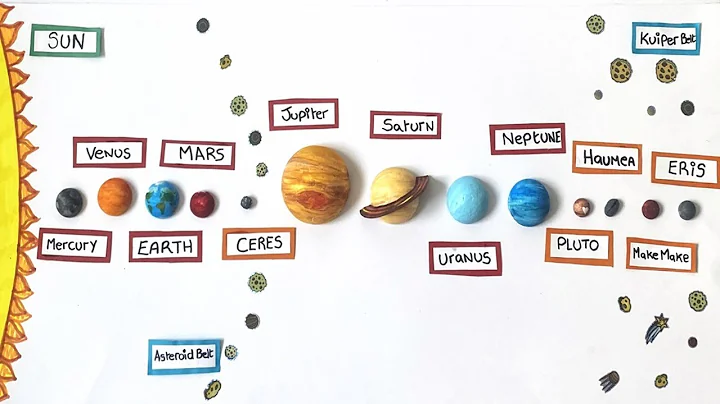 SUN
Kuiper Belt
Jupiter
Saturn
NEPTUNE
VENUS
MARS
HAUMEA
ERIS
Mercury
EARTH
CERES
URANUS
PLUTO
MakeMake
Asteroid Belt